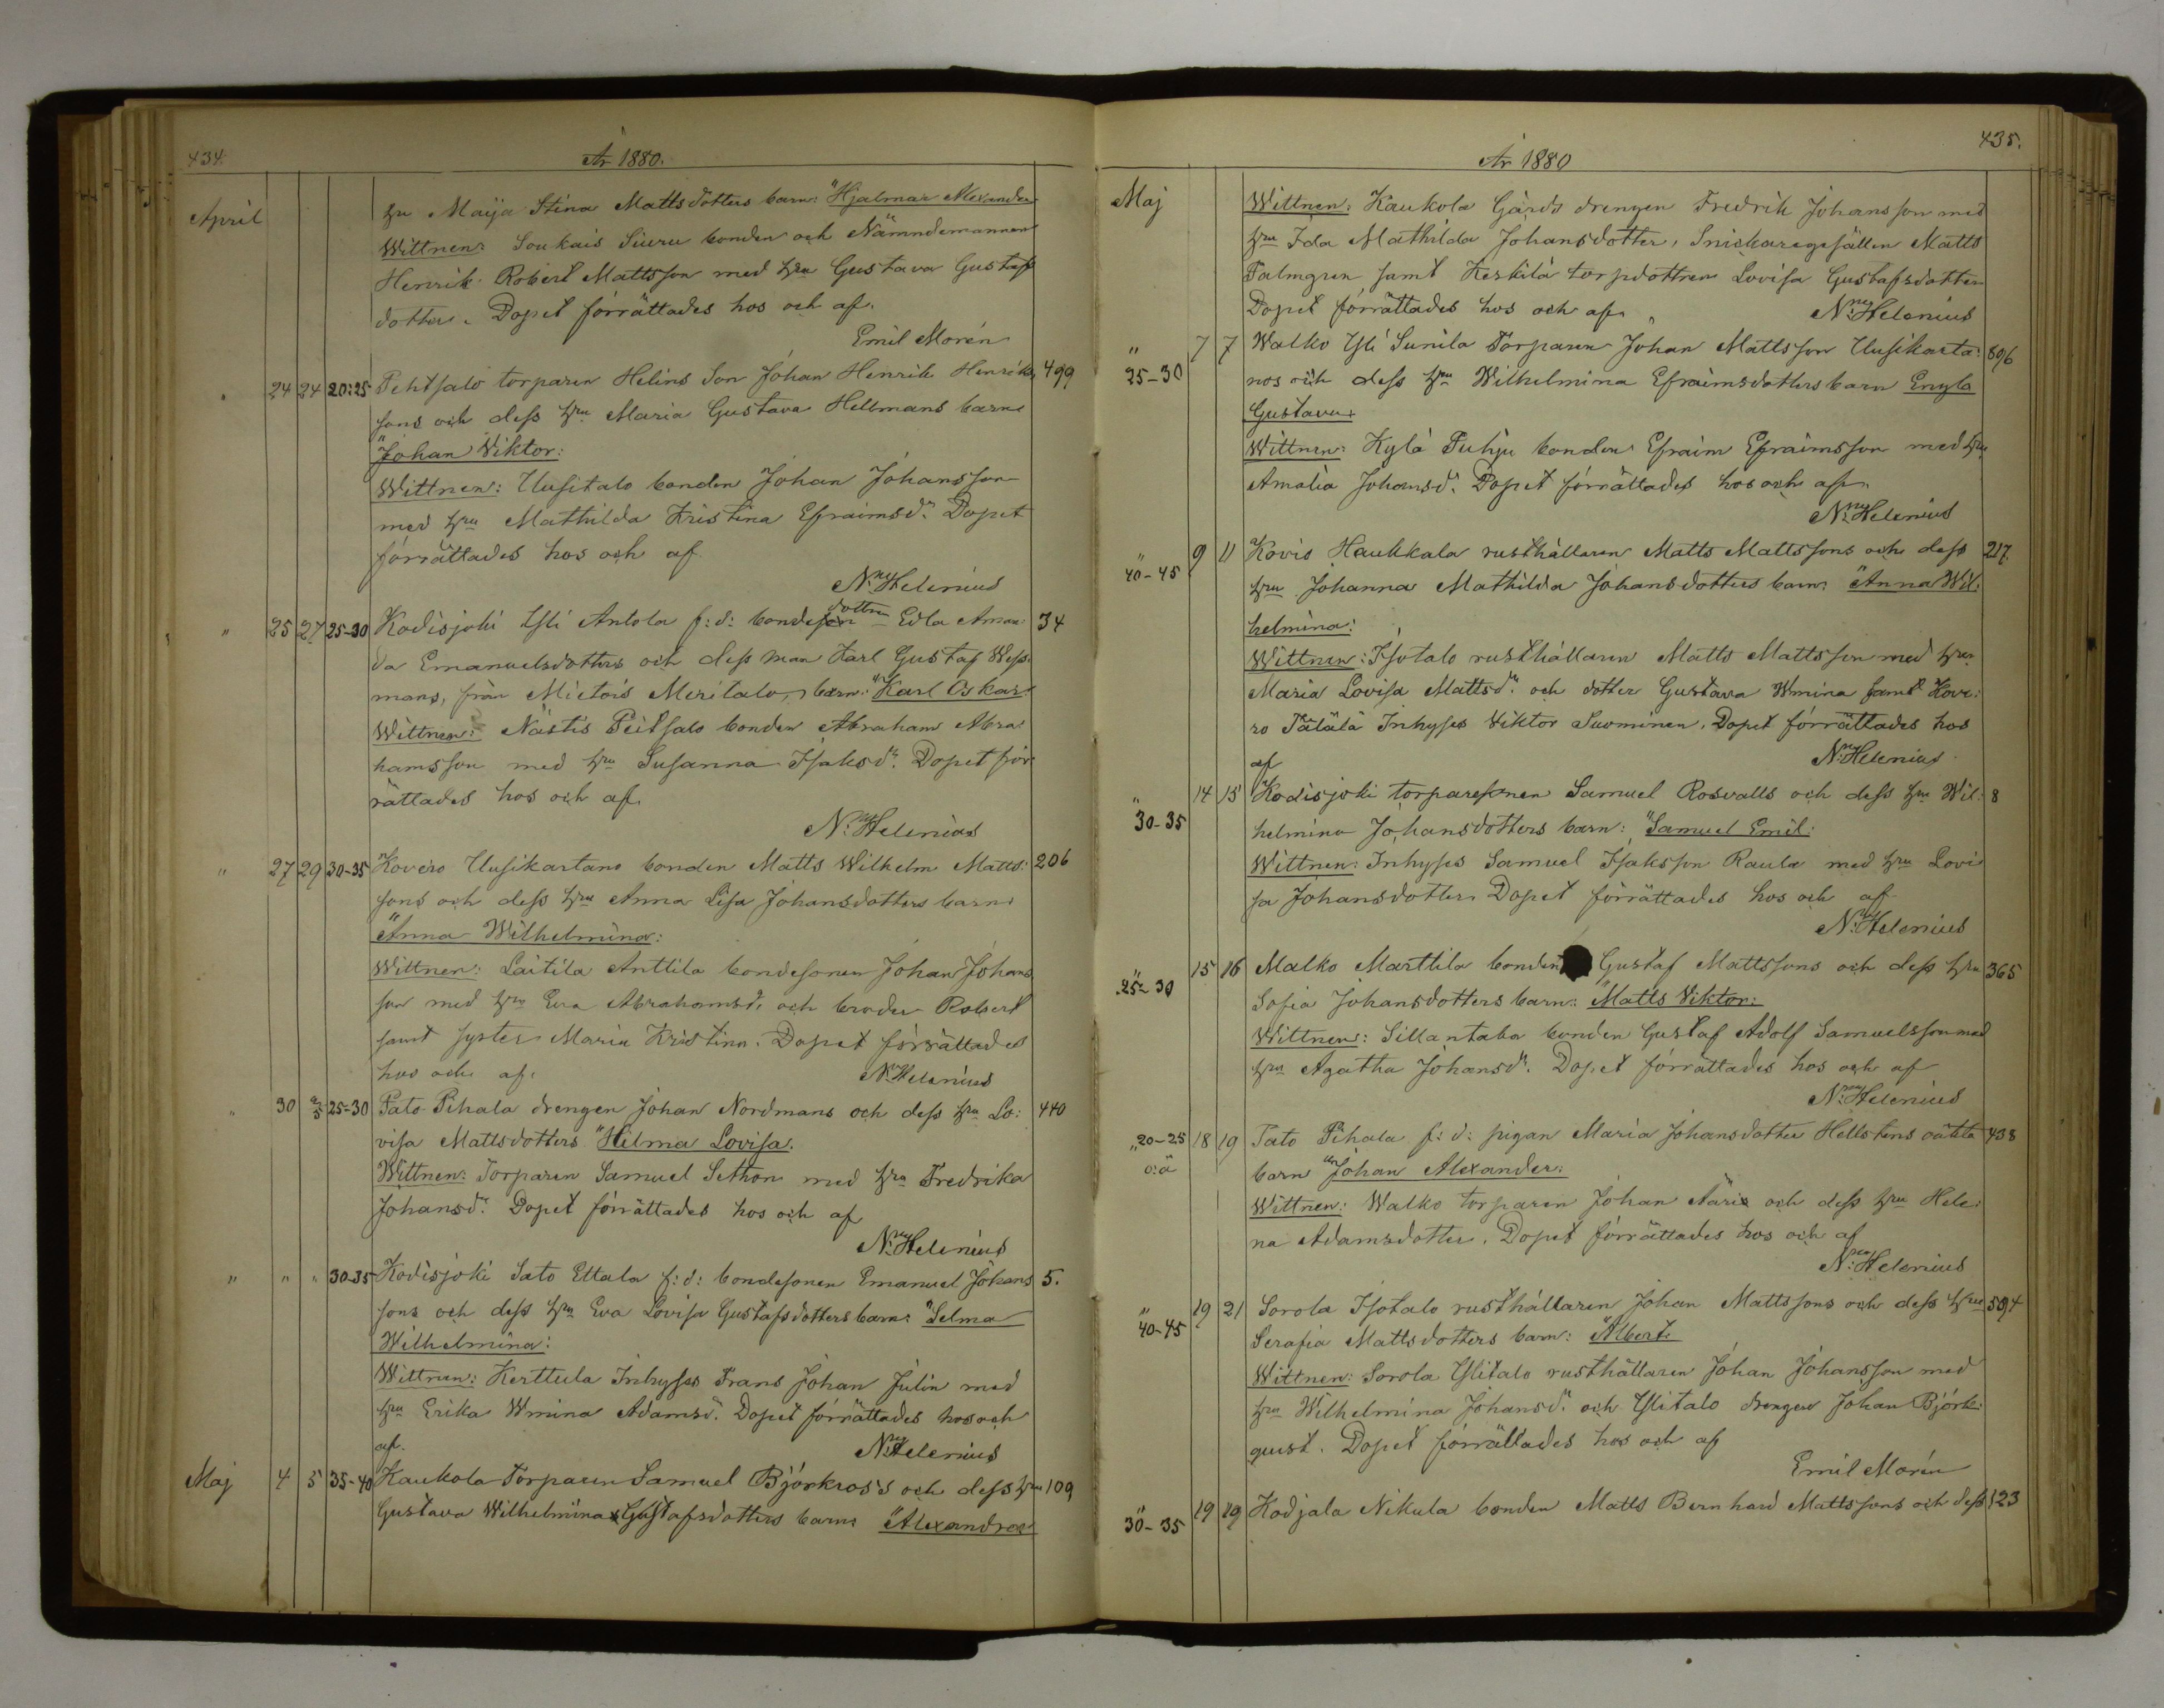 434.
År 1880.
April
hu Maija Stina Mattsdotters barn: "Hjalmar Alexander
Wittnen: Soukais Siuru bonden och Nämndemannen
Henrik Robert Mattsson med hru Gustava Gustafs
dotter. Dopet förrättades hos och af.
Emil Morén
" 24 24 20:25 Pehtsalo torparen Helins Son Johan Henrik Henriks 499
sons och dess hru Maria Gustava Hellmans barn
"Johan Viktor:
Wittnen: Uusitalo bonden Johan Johansson
med hru Mathilda Kristina Efraimsdr. Dopet
förrättades hos och af
N: Helenius
" 25 27 25-30 Kodisjoki Yli Antola f: d: bondedottren Edla Aman: 34
da Emanuelsdotters och dess man Karl Gustaf Wess
mans, från Mietois Meritalo, barn: "Karl Oskar:
Wittnen: Nästis Peitsalo bonden Abraham Abra:
hamsson med hru Susanna Isaksdr. Dopet för
rättades hos och af.
N: Helenius
" 27 29 30-35 Kovero Uusikartano bonden Matts Wilhelm Matts: 206
sons och dess hru Anna Lisa Johansdotters barn:
"Anna Wilhelmina:
Wittnen: Laitila Anttila bondesonen Johan Johans
son med hru Eva Abrahamsd. och broder Robert
samt syster Maria Kristina. Dopet förrättades
hos och af.
N: Helenius
" 30 2/5 25-30 Pato Pihala drengen Johan Nordmans och dess hru Lo: 440
visa Mattsdotters "Hilma Lovisa.
Wittnen: Torparen Samuel Sethon med hru Fredrika
Johansdr. Dopet förrättades hos och af
N: Helenius
" " " 30-35 Kodisjoki Sato Ettala f: d: bondesonen Emanuel Johans 5.
sons och dess hru Eva Lovisa Gustafsdotters barn: "Selma
Wilhelmina:
Wittnen: Kerttula Inhyses Frans Johan Julin med
hru Erika Wmina Adamsdr. Dopet förrättades hos och
af.
N: Helenius
Maj 4 5 35-40 Kaukola Torparen Samuel Björkros's och dess hru 109
Gustava Wilhelmina Gustafsdotters barn: "Alexandra
435.
År 1880
Maj
Wittnen: Kaukola Gårds drengen Fredrik Johansson med
hru Ida Mathilda Johansdotter, Snickaregesällen Matts
Palmgren samt Keskilä torpdottren Lovisa Gustafsdotter
Dopet förrättades hos och af
N: Helenius
" 25-30 7 7 Walko Yli Sunila Torparen Johan Mattsson Uusikarta: 896
nos och dess hru Wilhelmina Efraimsdotters barn Engla
Gustava
Wittnen: Kylä Puhju bonden Efraim Efraimsson med hru
Amalia Johansd. Dopet förrättades hos och af.
N: Helenius
" 40-45 9 11 Kovis Haukkala rusthållaren Matts Mattssons och dess 217
hru Johanna Mathilda Johansdotters barn: "Anna Wil:
helmina:
Wittnen: Isotalo rusthållaren Matts Mattsson med hru
Maria Lovisa Mattsdr. och dotter Gustava Wmina samt Kove:
ro Tälälä Inhyses Viktor Suominen. Dopet förrättades hos
af
N: Helenius
" 30-35 14 15 Kodisjoki torparesonen Samuel Rosvalls och dess hru Wil: 8
helmina Johansdotters barn: "Samuel Emil:
Wittnen: Inhyses Samuel Isaksson Raula med hru Lovi
sa Johansdotter. Dopet förrättades hos och af
N: Helenius
" 25-30 15 16 Malko Marttila bonden Gustaf Mattssons och dess hru 365
Sofia Johansdotters barn: "Matts Viktor:
Wittnen: Sillantaka bonden Gustaf Adolf Samuelsson med
hru Agatha Johansdr. Dopet förrättades hos och af
N: Helenius
" 20-25 18 19 Pato Pihala f: d: pigan Maria Johansdotter Hellstens oäkta 438
o:ä barn "Johan Alexander:
Wittnen: Walko torparen Johan Aäris och dess hru Hele:
na Adamsdotter. Dopet förrättades hos och af
N: Helenius
" 40-45 19 21 Sorola Isotalo rusthållaren Johan Mattssons och dess hru 594
Serafia Mattsdotters barn: "Albert.
Wittnen: Sorola Ylitalo rusthållaren Johan Johansson med
hru Wilhelmina Johansd. och Ylitalo drengen Johan Björk:
qvist. Dopet förrättades hos och af
Emil Morén
" 30-35 19 19 Kodjala Nikula bonden Matts Bernhard Mattssons och dess 123